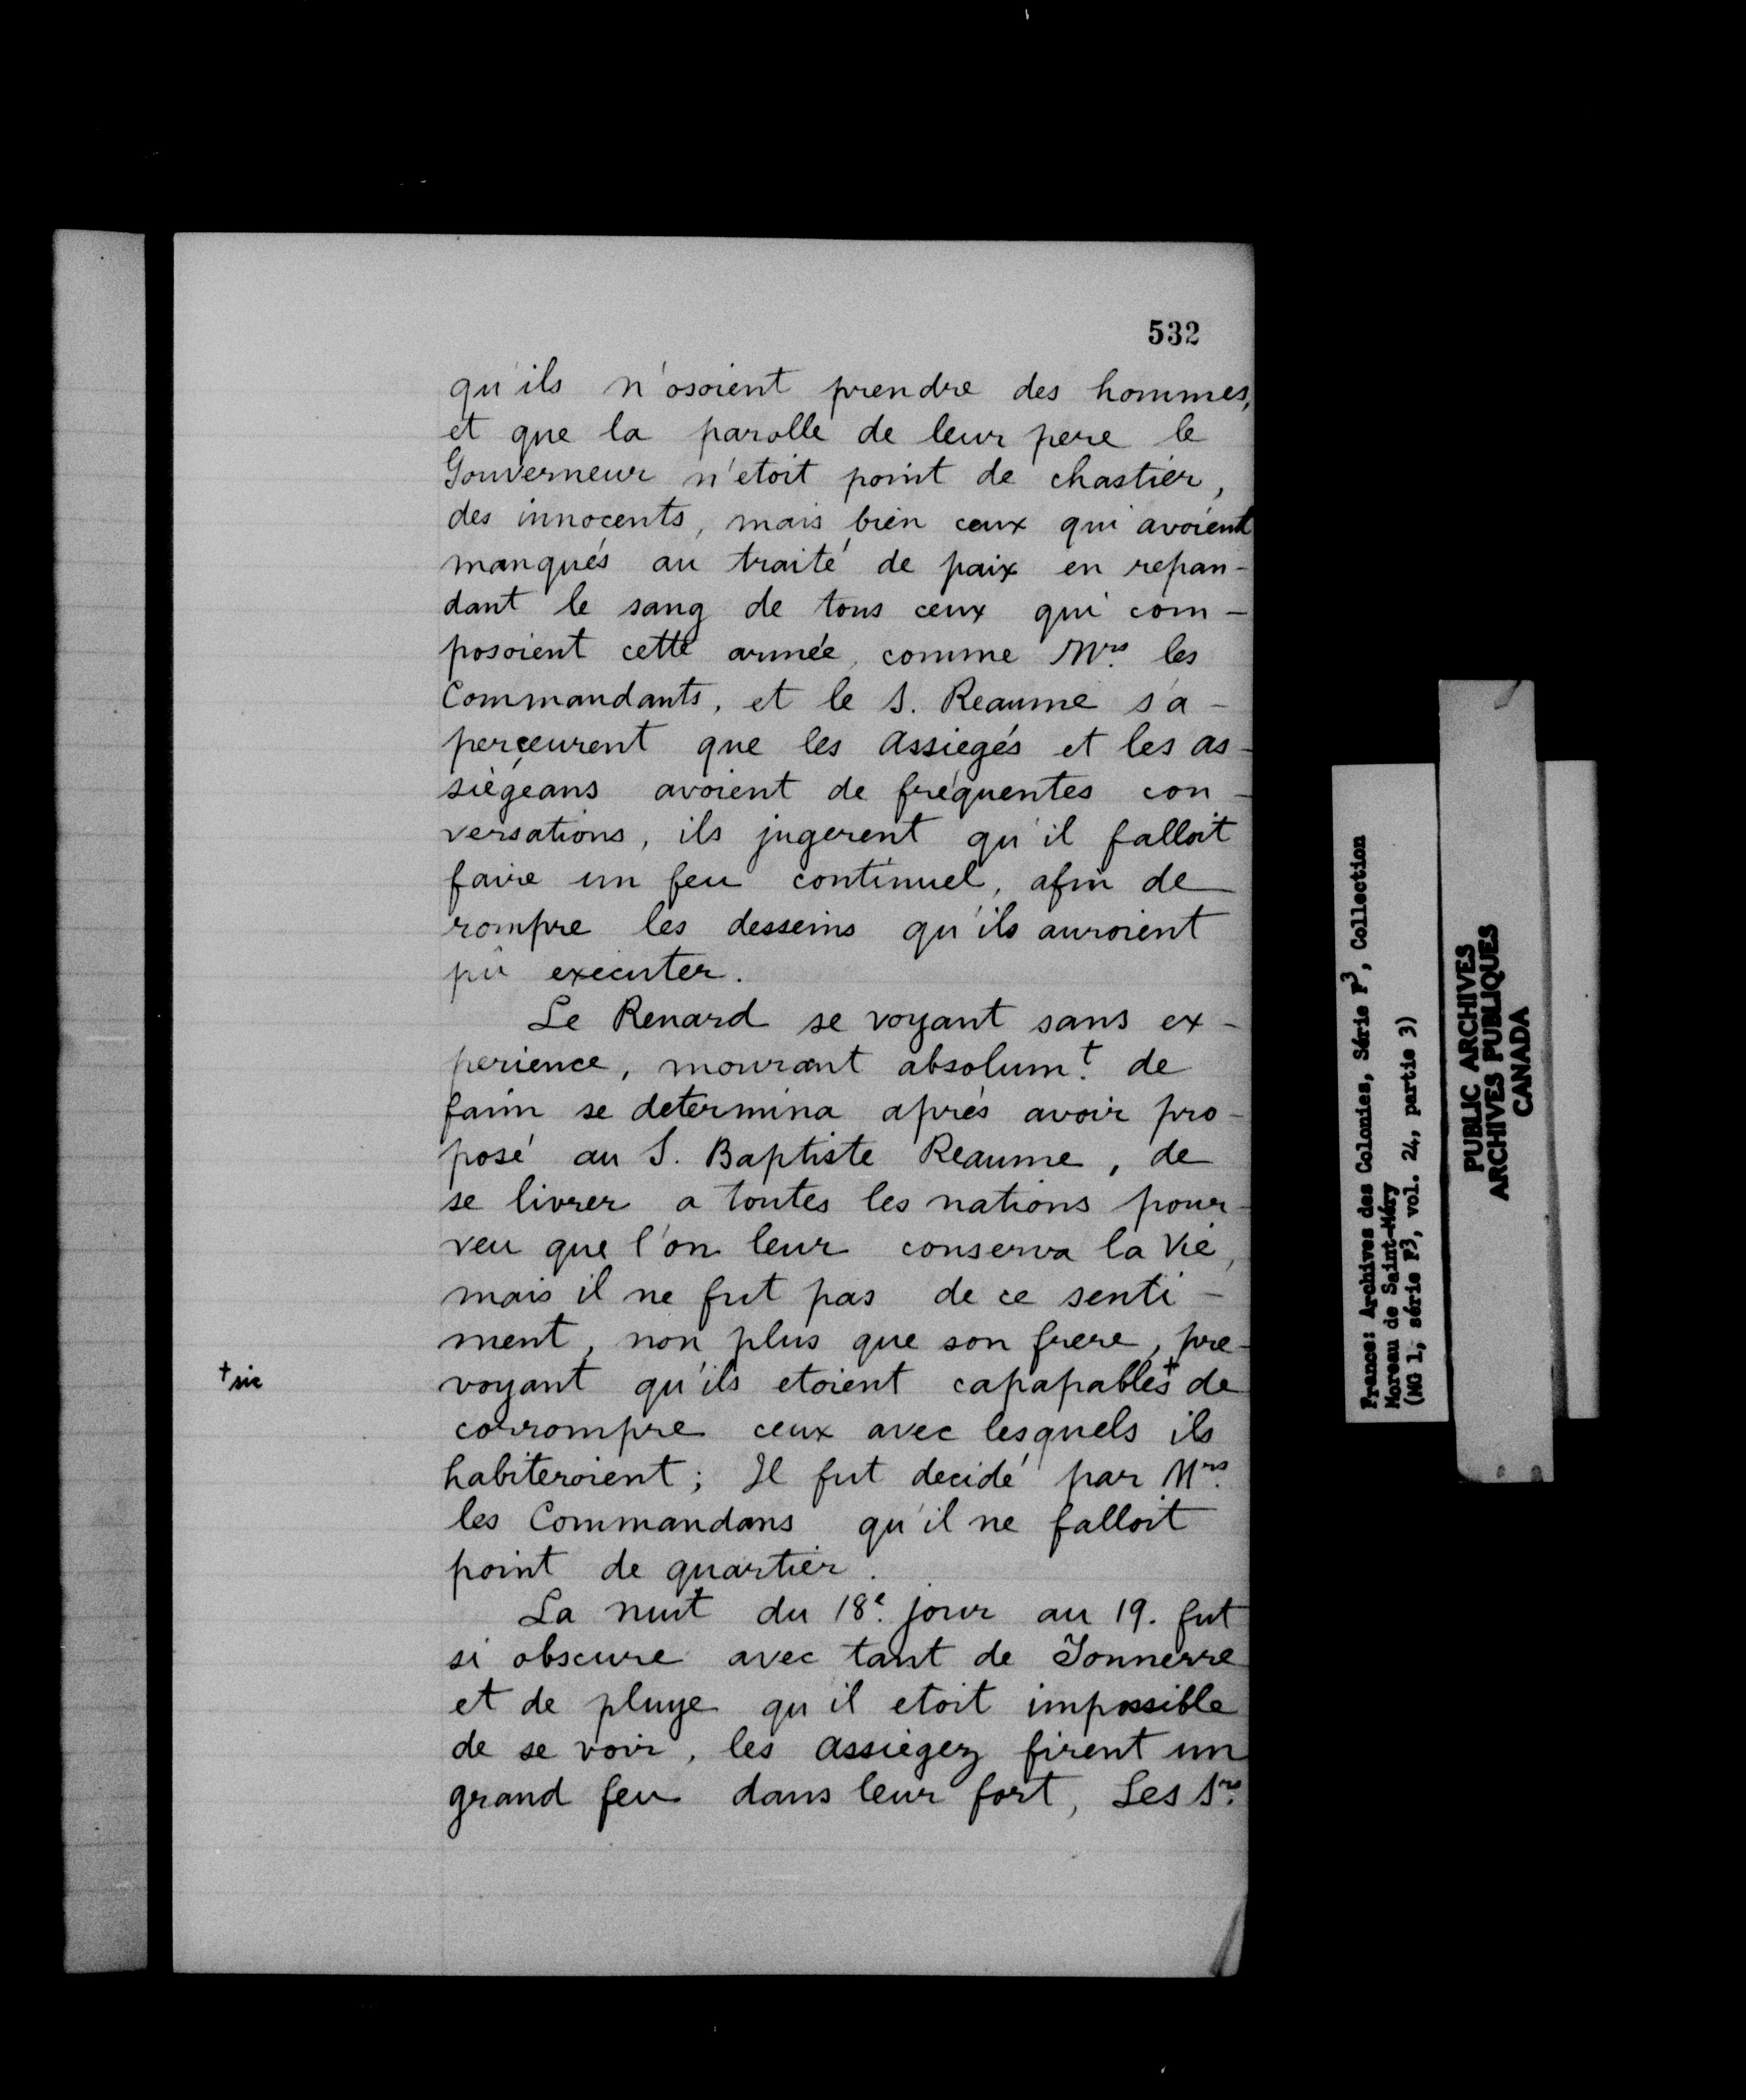 532
qu'ils n'osoient prendre des hommes,
et que la parolle de leur pere le
Gouverneur n'etoit point de chastier,
des innocents, mais bien ceux qui avoient
manqués au traité de paix en repan-
dant le sang de tous ceux qui com-
posoient cette armée, comme Mrs. les
Commandants, et le S. Reaume s'a-
perçeurent que les assiegés et les as-
siègeans avoient de fréquentes con-
versations, ils jugerent qu'il falloit
faire un feu continuel, afin de
rompre les desseins qu'ils auroient
pû executer.
Le Renard se voyant sans ex-
perience, mourant absolum.t de
faim se determina aprés avoir pro-
posé au S. Baptiste Reaume, de
se livrer a toutes les nations pour-
veu que l'on leur conserva la vie,
mais il ne fut pas de ce senti-
ment, non plus que son frere, pre-
voyant qu'ils etoient capapables+ de
+ sic
corrompre ceux avec lesquels ils
habiteroient; Il fut decidé par Mrs.
les Commandans qu'il ne falloit
point de quartier.
La nuit du 18e. jour au 19. fut
si obscure avec tant de Tonnerre
et de pluye qu'il etoit impossible
de se voir, les assiegez firent un
grand feu dans leur fort, Les Srs.
France: Archives des Colonies, Série F3, Collection
Moreau de Saint-Méry
(MG 1, série F3, vol. 24, partie 3)
PUBLIC ARCHIVES
ARCHIVES PUBLIQUES
CANADA